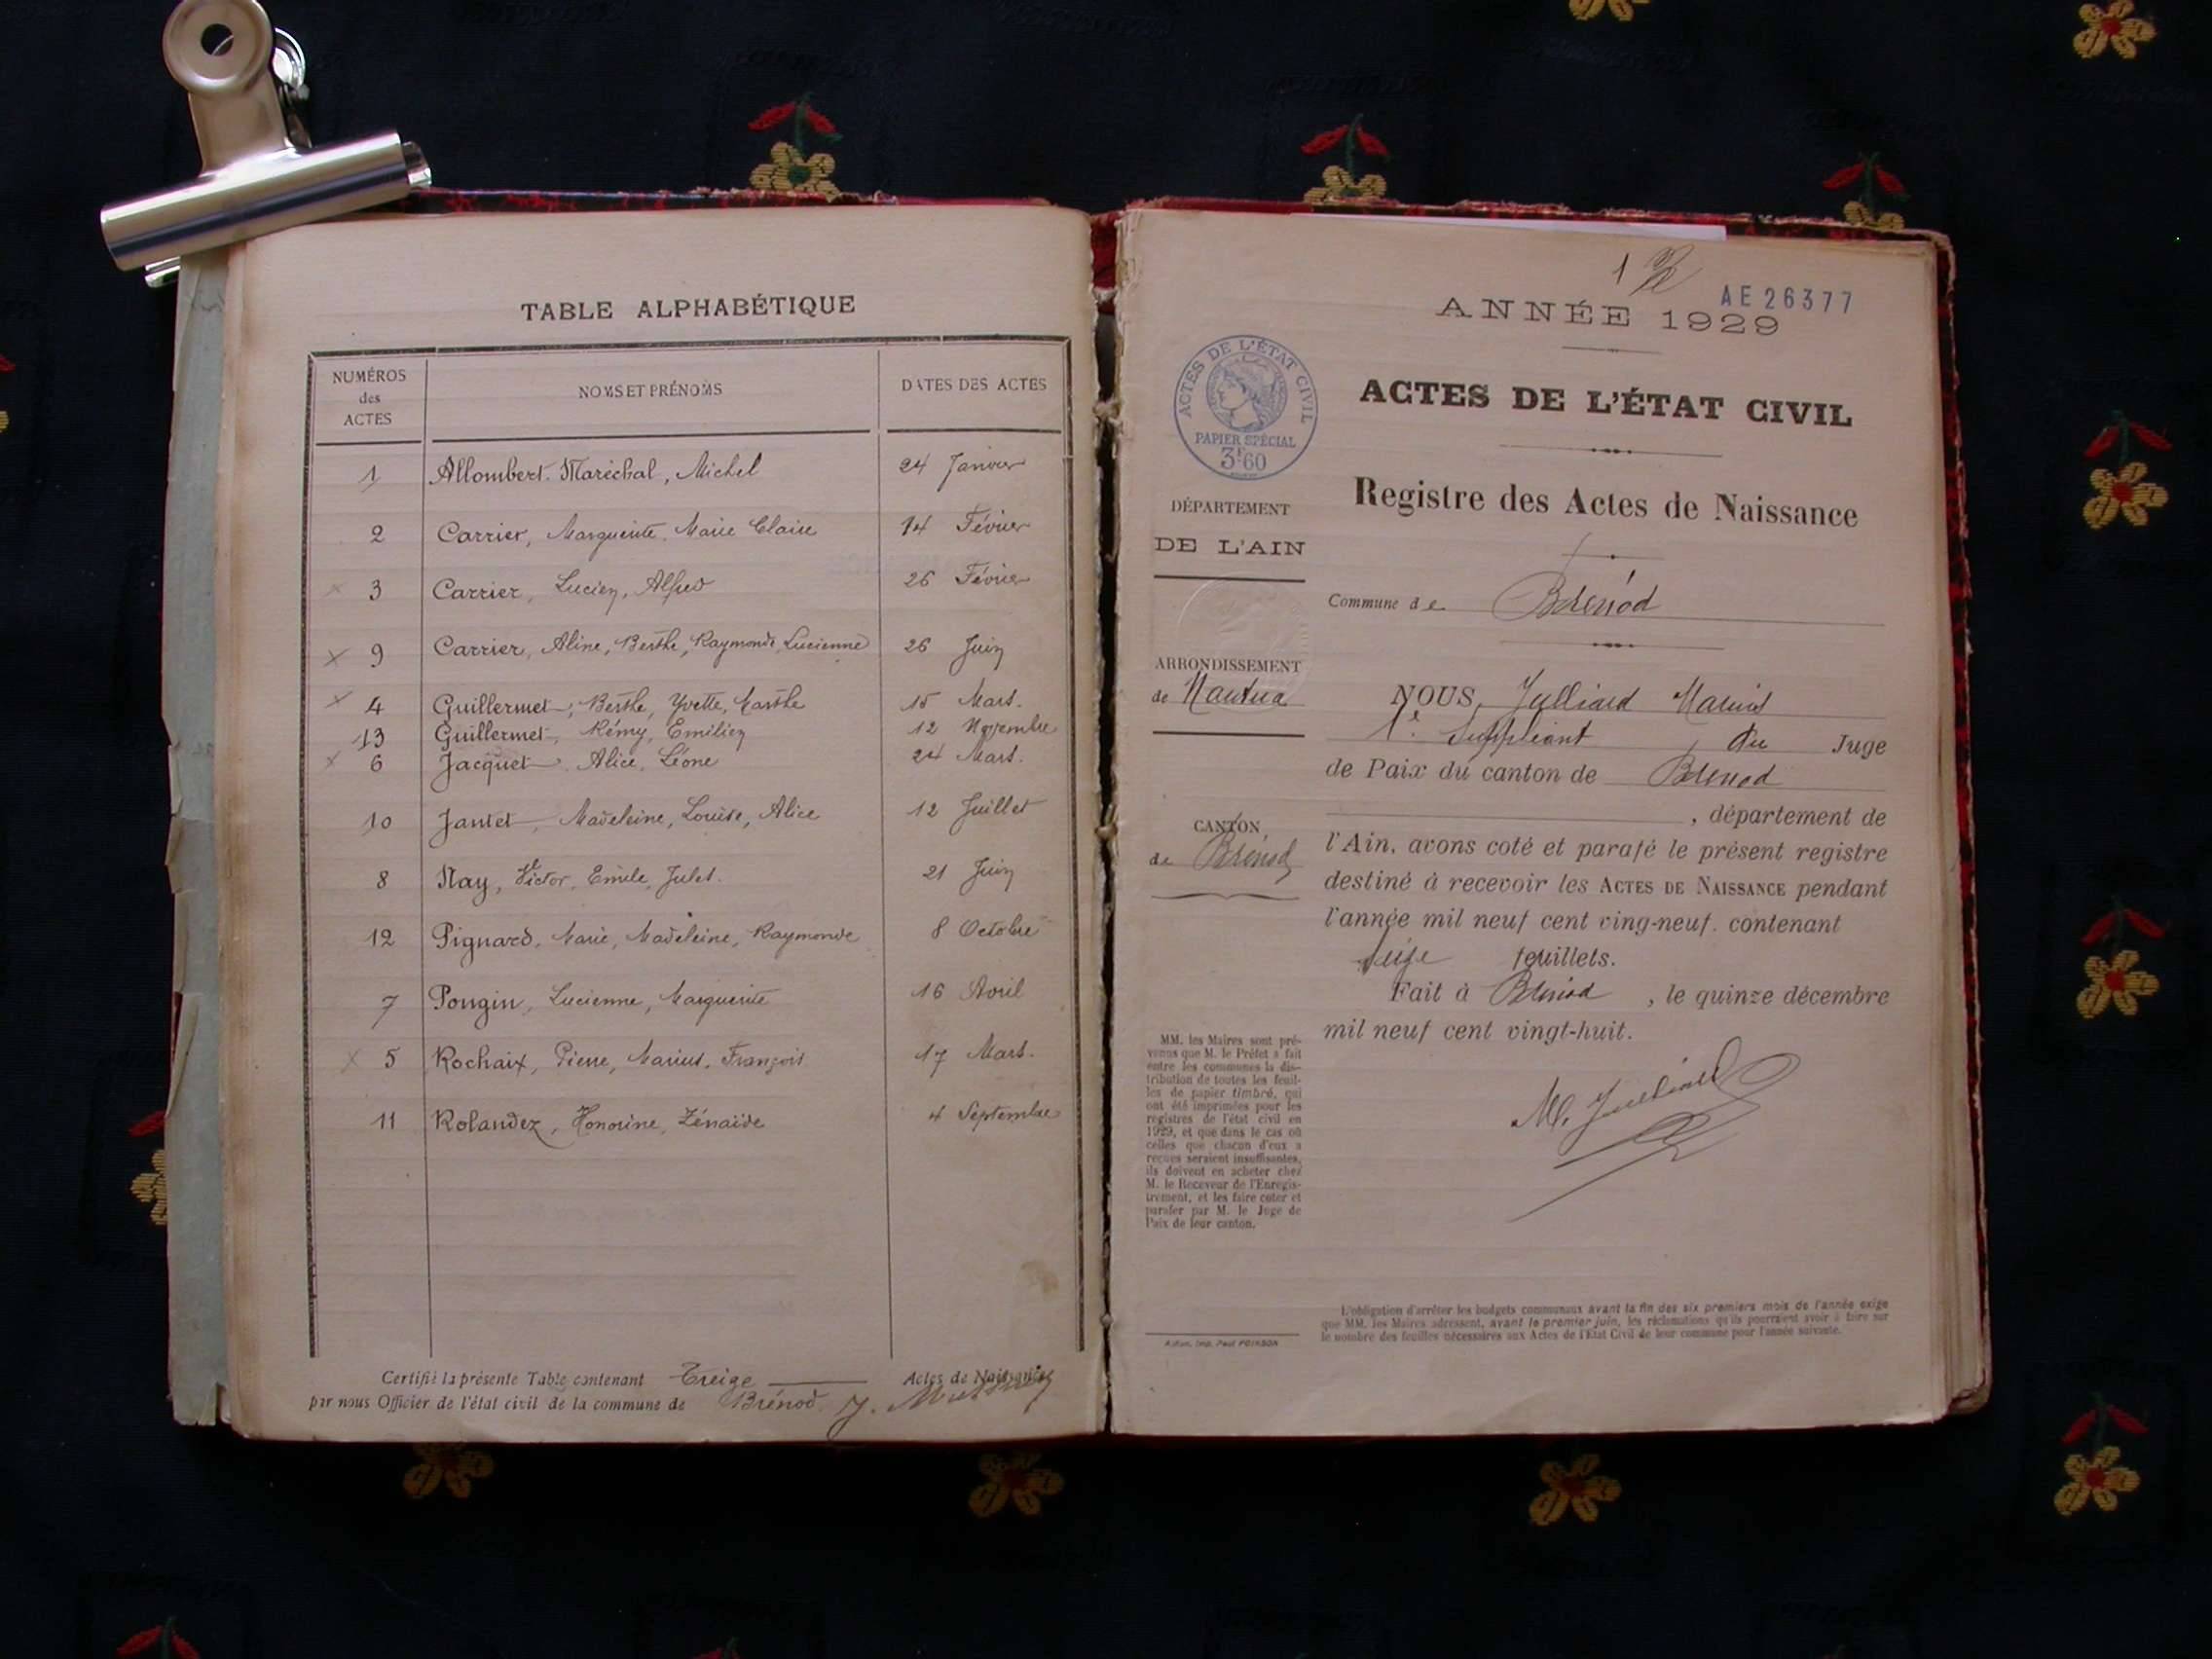 TABLE ALPHABÉTIQUE
NUMÉROS
des
ACTES
NOMS ET PRÉNOMS
DATES DES ACTES
1 Allombert-Maréchal, Michel 24 Janvier
2 Carrier, Marguerite, Marie Claire 14 Février
x 3 Carrier, Lucien, Alfred 26 Février
x 9 Carrier, Aline, Berthe, Raymonde, Lucienne 26 Juin
x 4 Guillermet, Berthe, Yvette, Marthe 15 Mars.
13 Guillermet, Rémy, Emilien 12 Novembre
x 6 Jacquet, Alice, Léone 24 Mars.
10 Jantet, Madeleine, Louise, Alice 12 Juillet
8 Nay, Victor, Emile, Jules. 21 Juin
12 Pignard, Marie, Madeleine, Raymonde 8 Octobre
7 Pongin, Lucienne, Marguerite 16 Avril
x 5 Rochaix, Pierre, Marius, François 17 Mars.
11 Rolandez, Honorine, Zénaïde 4 Septembre
Certifié la présente Table contenant Treize Actes de Naissance
par nous Officier de l'état civil de la commune de Brénod.
1
AE 26377
ANNÉE 1929
ACTES DE L'ÉTAT CIVIL
PAPIER SPÉCIAL
3F60
ACTES DE L'ÉTAT CIVIL
Registre des Actes de Naissance
DÉPARTEMENT
DE L'AIN
Commune de Brénod
ARRONDISSEMENT
de Nantua
CANTON
de Brénod
NOUS, Julliard Marius
1er Suppléant du Juge
de Paix du canton de Brénod
, département de
l'Ain, avons coté et parafé le présent registre
destiné à recevoir les ACTES DE NAISSANCE pendant
l'année mil neuf cent ving-neuf. contenant
seize feuillets.
Fait à Brénod, le quinze décembre
mil neuf cent vingt-huit.
M. Julliard
MM. les Maires sont pré-
venus que M. le Préfet a fait
entre les communes la dis-
tribution de toutes les feuil-
les de papier timbré, qui
ont été imprimées pour les
registres de l'état civil en
1929, et que dans le cas où
celles que chacun d'eux a
reçues seraient insuffisantes,
ils doivent en acheter chez
M. le Receveur de l'Enregis-
trement, et les faire coter et
parafer par M. le Juge de
Paix de leur canton.
L'obligation d'arrêter les budgets communaux avant la fin des six premiers mois de l'année exige
que MM. les Maires adressent, avant le premier juin, les réclamations qu'ils pourraient avoir à faire sur
le nombre des feuilles nécessaires aux Actes de l'Etat Civil de leur commune pour l'année suivante.
Imp. Paul